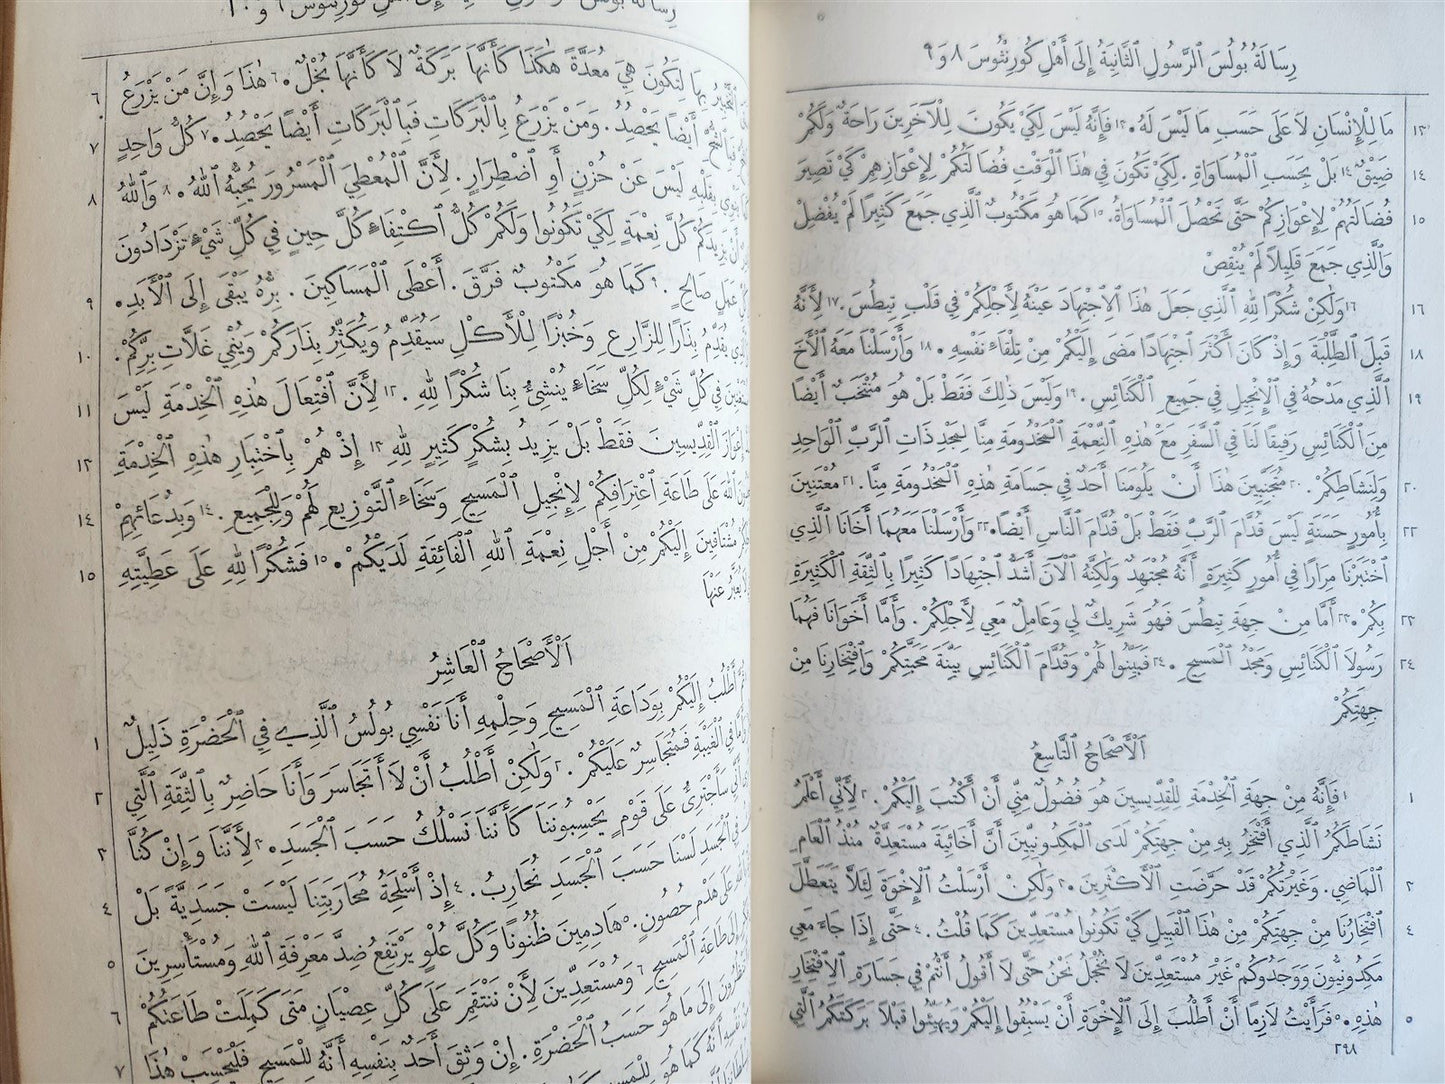 رِسَالَةُ بُولُسَ ٱلرَّسُولِ ٱلثَّانِيَةُ إِلَى أَهْلِ كُورِنْثُوسَ ٨ وَ ٩
١٣ مَا لِلْإِنْسَانِ لَا عَلَى حَسَبِ مَا لَيْسَ لَهُ. ١٣ فَإِنَّهُ لَيْسَ لِكَيْ يَكُونَ لِلْآخَرِينَ رَاحَةٌ وَلَكُمْ
١٤ ضِيْقٌ ١٤ بَلْ بِحَسَبِ ٱلْمُسَاوَاةِ. لِكَيْ تَكُونَ فِي هٰذَا ٱلْوَقْتِ فُضَالَتُكُمْ لِإِعْوَازِهِمْ كَيْ تَصِيرَ
١٥ فُضَالَتُهُمْ لِإِعْوَازِكُمْ حَتَّى تَحْصُلَ ٱلْمُسَاوَاةُ. ١٥ كَمَا هُوَ مَكْتُوبٌ ٱلَّذِي جَمَعَ كَثِيرًا لَمْ يُفْضِلْ
وَٱلَّذِي جَمَعَ قَلِيلاً لَمْ يُنْقِصْ
١٦ ١٦ وَلٰكِنْ شُكْرًا لِلهِ ٱلَّذِي جَعَلَ هٰذَا ٱلِٱجْتِهَادَ عَيْنَهُ لِأَجْلِكُمْ فِي قَلْبِ تِيطُسَ. ١٧ لِأَنَّهُ
١٨ قَبِلَ ٱلطِّلْبَةَ وَإِذْ كَانَ أَكْثَرَ ٱجْتِهَادًا مَضَى إِلَيْكُمْ مِنْ تِلْقَاءِ نَفْسِهِ. ١٨ وَأَرْسَلْنَا مَعَهُ ٱلْأَخَ
١٩ ٱلَّذِي مَدْحُهُ فِي ٱلْإِنْجِيلِ فِي جَمِيعِ ٱلْكَنَائِسِ. ١٩ وَلَيْسَ ذٰلِكَ فَقَطْ بَلْ هُوَ مُنْتَخَبٌ أَيْضًا
مِنَ ٱلْكَنَائِسِ رَفِيقًا لَنَا فِي ٱلسَّفَرِ مَعَ هٰذِهِ ٱلنِّعْمَةِ ٱلْمَخْدُومَةِ مِنَّا لِمَجْدِ ذَاتِ ٱلرَّبِّ ٱلْوَاحِدِ
٢٠ وَلِنَشَاطِكُمْ. ٢٠ مُتَجَنِّبِينَ هٰذَا أَنْ يَلُومَنَا أَحَدٌ فِي جَسَامَةِ هٰذِهِ ٱلْمَخْدُومَةِ مِنَّا. ٢١ مُعْتَنِينَ
٢٢ بِأُمُورٍ حَسَنَةٍ لَيْسَ قُدَّامَ ٱلرَّبِّ فَقَطْ بَلْ قُدَّامَ ٱلنَّاسِ أَيْضًا. ٢٢ وَأَرْسَلْنَا مَعَهُمَا أَخَانَا ٱلَّذِي
ٱخْتَبَرْنَا مِرَارًا فِي أُمُورٍ كَثِيرَةٍ أَنَّهُ مُجْتَهِدٌ وَلٰكِنَّهُ ٱلْآنَ أَشَدُّ ٱجْتِهَادًا كَثِيرًا بِٱلثِّقَةِ ٱلْكَثِيرَةِ
٢٣ بِكُمْ. ٢٣ أَمَّا مِنْ جِهَةِ تِيطُسَ فَهُوَ شَرِيكٌ لِي وَعَامِلٌ مَعِي لِأَجْلِكُمْ. وَأَمَّا أَخَوَانَا فَهُمَا
٢٤ رَسُولَا ٱلْكَنَائِسِ وَمَجْدُ ٱلْمَسِيحِ. ٢٤ فَبَيِّنُوا لَهُمْ وَقُدَّامَ ٱلْكَنَائِسِ بَيِّنَةَ مَحَبَّتِكُمْ وَٱفْتِخَارِنَا مِنْ
جِهَتِكُمْ
ٱلْأَصْحَاحُ ٱلتَّاسِعُ
١ ١ فَإِنَّهُ مِنْ جِهَةِ ٱلْخِدْمَةِ لِلْقِدِّيسِينَ هُوَ فُضُولٌ مِنِّي أَنْ أَكْتُبَ إِلَيْكُمْ. ٢ لِأَنِّي أَعْلَمُ
نَشَاطَكُمُ ٱلَّذِي أَفْتَخِرُ بِهِ مِنْ جِهَتِكُمْ لَدَى ٱلْمَكِدُونِيِّينَ أَنَّ أَخَائِيَةَ مُسْتَعِدَّةٌ مُنْذُ ٱلْعَامِ
٣ ٱلْمَاضِي. وَغَيْرَتُكُمْ قَدْ حَرَّضَتِ ٱلْأَكْثَرِينَ. ٣ وَلٰكِنْ أَرْسَلْتُ ٱلْإِخْوَةَ لِئَلاَّ يَتَعَطَّلَ
٤ ٱفْتِخَارُنَا مِنْ جِهَتِكُمْ مِنْ هٰذَا ٱلْقَبِيلِ كَيْ تَكُونُوا مُسْتَعِدِّينَ كَمَا قُلْتُ. ٤ حَتَّى إِذَا جَاءَ مَعِي
مَكِدُونِيُّونَ وَوَجَدُوكُمْ غَيْرَ مُسْتَعِدِّينَ لَا نُخْجَلُ نَحْنُ حَتَّى لَا أَقُولُ أَنْتُمْ فِي جَسَارَةِ ٱلِٱفْتِخَارِ
٥ هٰذِهِ. ٥ فَرَأَيْتُ لَازِمًا أَنْ أَطْلُبَ إِلَى ٱلْإِخْوَةِ أَنْ يَسْبِقُوا إِلَيْكُمْ وَيُهَيِّئُوا قَبْلاً بَرَكَتَكُمُ ٱلَّتِي
٢٩٨
رِسَالَةُ بُولُسَ إِلَى أَهْلِ كُورِنْثُوسَ ٩ وَ ١٠
٦ ٱلتَّخْبِيرُ بِهَا لِتَكُونَ هِيَ مُعَدَّةً هٰكَذَا كَأَنَّهَا بَرَكَةٌ لَا كَأَنَّهَا بُخْلٌ. ٦ هٰذَا وَإِنَّ مَنْ يَزْرَعُ
٧ فَبِٱلشُّحِّ أَيْضًا يَحْصُدُ. وَمَنْ يَزْرَعُ بِٱلْبَرَكَاتِ فَبِٱلْبَرَكَاتِ أَيْضًا يَحْصُدُ. ٧ كُلُّ وَاحِدٍ
٨ يَنْوِي بِقَلْبِهِ لَيْسَ عَنْ حُزْنٍ أَوِ ٱضْطِرَارٍ. لِأَنَّ ٱلْمُعْطِيَ ٱلْمَسْرُورَ يُحِبُّهُ ٱللهُ. ٨ وَٱللهُ
أَنْ يَزِيدَكُمْ كُلَّ نِعْمَةٍ لِكَيْ تَكُونُوا وَلَكُمْ كُلُّ ٱكْتِفَاءٍ كُلَّ حِينٍ فِي كُلِّ شَيْءٍ تَزْدَادُونَ
٩ عَمَلٍ صَالِحٍ. ٩ كَمَا هُوَ مَكْتُوبٌ فَرَّقَ. أَعْطَى ٱلْمَسَاكِينَ. بِرُّهُ يَبْقَى إِلَى ٱلْأَبَدِ.
١٠ يُقَدِّمُ بِذَارًا لِلزَّارِعِ وَخُبْزًا لِلْأَكْلِ سَيُقَدِّمُ وَيُكَثِّرُ بِذَارَكُمْ وَيُنْمِي غَلَّاتِ بِرِّكُمْ.
١١ فِي كُلِّ شَيْءٍ لِكُلِّ سَخَاءٍ يُنْشِئُ بِنَا شُكْرًا لِلهِ. ١٢ لِأَنَّ ٱفْتِعَالَ هٰذِهِ ٱلْخِدْمَةِ لَيْسَ
١٣ إِعْوَازَ ٱلْقِدِّيسِينَ فَقَطْ بَلْ يَزِيدُ بِشُكْرٍ كَثِيرٍ لِلهِ ١٣ إِذْ هُمْ بِٱخْتِبَارِ هٰذِهِ ٱلْخِدْمَةِ
١٤ ٱللهَ عَلَى طَاعَةِ ٱعْتِرَافِكُمْ لِإِنْجِيلِ ٱلْمَسِيحِ وَسَخَاءِ ٱلتَّوْزِيعِ لَهُمْ وَلِلْجَمِيعِ. ١٤ وَبِدُعَائِهِمْ
١٥ مُشْتَاقِينَ إِلَيْكُمْ مِنْ أَجْلِ نِعْمَةِ ٱللهِ ٱلْفَائِقَةِ لَدَيْكُمْ. ١٥ فَشُكْرًا لِلهِ عَلَى عَطِيَّتِهِ
يُعَبَّرُ عَنْهَا
ٱلْأَصْحَاحُ ٱلْعَاشِرُ
١ أَطْلُبُ إِلَيْكُمْ بِوَدَاعَةِ ٱلْمَسِيحِ وَحِلْمِهِ أَنَا نَفْسِي بُولُسُ ٱلَّذِي فِي ٱلْحَضْرَةِ ذَلِيلٌ
٢ فِي ٱلْغَيْبَةِ فَمُتَجَاسِرٌ عَلَيْكُمْ. ٢ وَلٰكِنْ أَطْلُبُ أَنْ لَا أَتَجَاسَرَ وَأَنَا حَاضِرٌ بِٱلثِّقَةِ ٱلَّتِي
٣ أَنِّي سَأَجْتَرِئُ عَلَى قَوْمٍ يَحْسِبُونَنَا كَأَنَّنَا نَسْلُكُ حَسَبَ ٱلْجَسَدِ. ٣ لِأَنَّنَا وَإِنْ كُنَّا
٤ فِي ٱلْجَسَدِ لَسْنَا حَسَبَ ٱلْجَسَدِ نُحَارِبُ. ٤ إِذْ أَسْلِحَةُ مُحَارَبَتِنَا لَيْسَتْ جَسَدِيَّةً بَلْ
٥ عَلَى هَدْمِ حُصُونٍ. ٥ هَادِمِينَ ظُنُونًا وَكُلَّ عُلْوٍ يَرْتَفِعُ ضِدَّ مَعْرِفَةِ ٱللهِ وَمُسْتَأْسِرِينَ
٦ إِلَى طَاعَةِ ٱلْمَسِيحِ ٦ وَمُسْتَعِدِّينَ لِأَنْ نَنْتَقِمَ عَلَى كُلِّ عِصْيَانٍ مَتَى كَمِلَتْ طَاعَتُكُمْ
٧ إِلَى مَا هُوَ حَسَبَ ٱلْحَضْرَةِ. إِنْ وَثِقَ أَحَدٌ بِنَفْسِهِ أَنَّهُ لِلْمَسِيحِ فَلْيَحْسِبْ هٰذَا